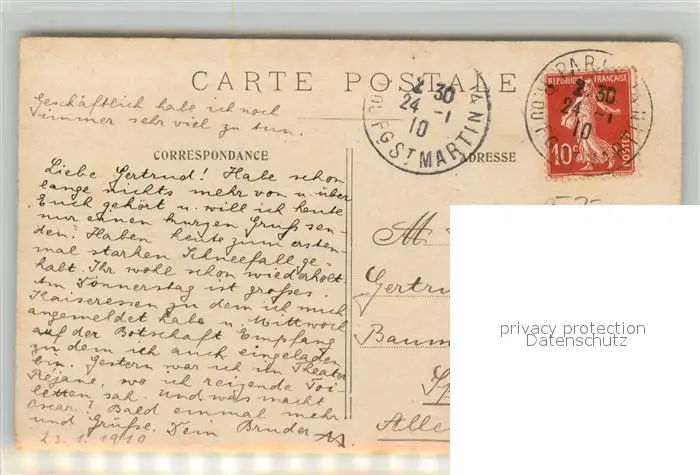 CARTE POSTALE
Geschäftlich habe ich noch
immer sehr viel zu tun.
CORRESPONDANCE
ADRESSE
Liebe Gertrud! Habe schon
lange nichts mehr von u. über
Euch gehört u. will ich heute
nur einen kurzen Gruß sen-
den. Haben heute zum ersten-
mal starken Schneefall ge-
habt. Ihr wohl schon wiederholt.
Am Donnerstag ist großes
Kaiseressen zu dem ich mich
angemeldet habe u. Mittwoch
auf der Botschaft Empfang
zu dem ich auch eingeladen
bin. Gestern war ich im Theater
Réjane, wo ich reizende Toi-
letten sah. Und was macht
Oscar? Bald einmal mehr
und Grüße. Dein Bruder
23.1.1910
2 30
24 - 1
10
FG ST MARTIN
REPUBLIQUE FRANÇAISE
10 c
POSTES
PARIS
2 30
24 - 1
10
M
Gertru
Baum
Sp
Alle
privacy protection
Datenschutz